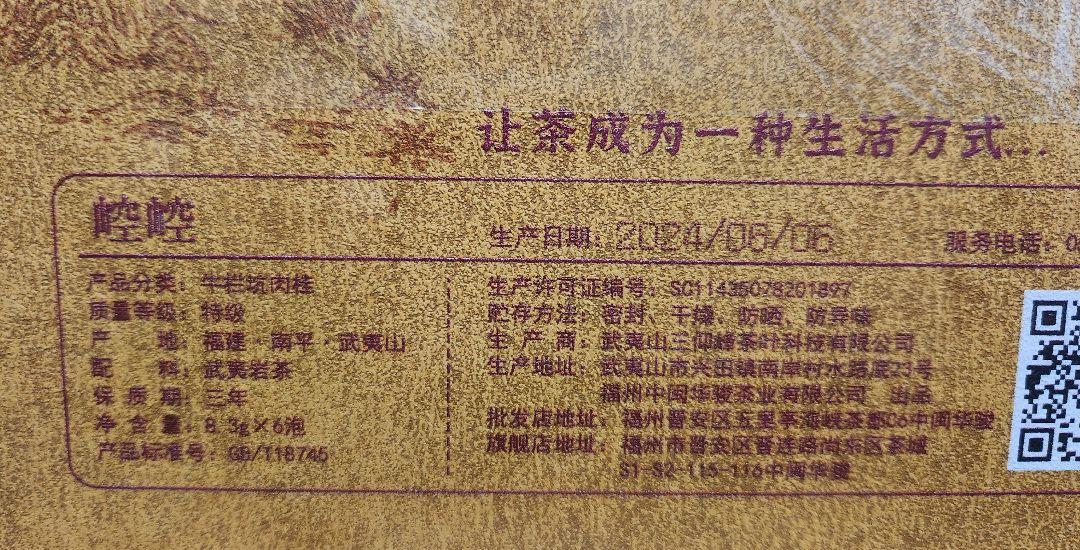 让茶成为一种生活方式...
崆崆
生产日期：2024/06/06
服务电话：0
产品分类：牛栏坑肉桂
质量等级：特级
产 地：福建·南平·武夷山
配 料：武夷岩茶
保 质 期：三年
净 含 量：8.3g×6泡
产品标准号：GB/T18745
生产许可证编号：SC11435078201897
贮存方法：密封、干燥、防晒、防异味
生 产 商：武夷山三仰峰茶叶科技有限公司
生产地址：武夷山市兴田镇南岸村水路底23号
福州中闽华骏茶业有限公司 出品
批发店地址：福州晋安区五里亭海峡茶都C6中闽华骏
旗舰店地址：福州市晋安区晋连路尚东区茶城
S1-S2-115-116中闽华骏